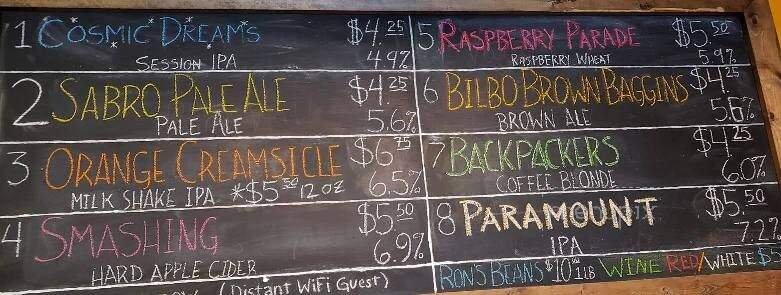 1 COSMIC DREAMS $4.25
SESSION IPA 4.9%
2 SABRO PALE ALE $4.25
PALE ALE 5.6%
3 ORANGE CREAMSICLE $6.75
MILK SHAKE IPA *$5.50 12 OZ 6.5%
4 SMASHING $5.50
HARD APPLE CIDER 6.9%
(DISTANT WIFI GUEST)
5 RASPBERRY PARADE $5.50
RASPBERRY WHEAT 5.9%
6 BILBO BROWN BAGGINS $4.25
BROWN ALE 5.6%
7 BACKPACKERS $4.25
COFFEE BLONDE 6.0%
8 PARAMOUNT $5.50
IPA 7.2%
RON'S BEANS $10.00 1LB WINE RED/WHITE $5